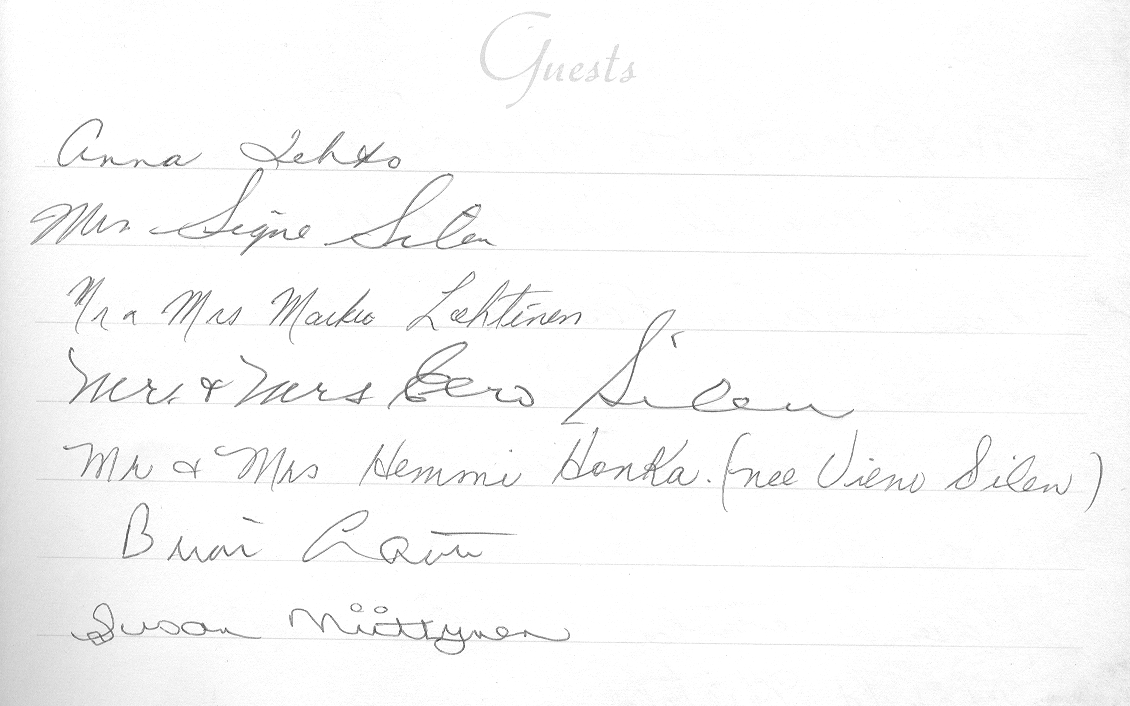 Guests
Anna Lehto
Mrs Signe Silen
Mr & Mrs Marku Lahtinen
Mr. & Mrs Eero Silen
Mr & Mrs Hemmi Honka. (nee Vieno Silen)
Brian
Susan Niittynen